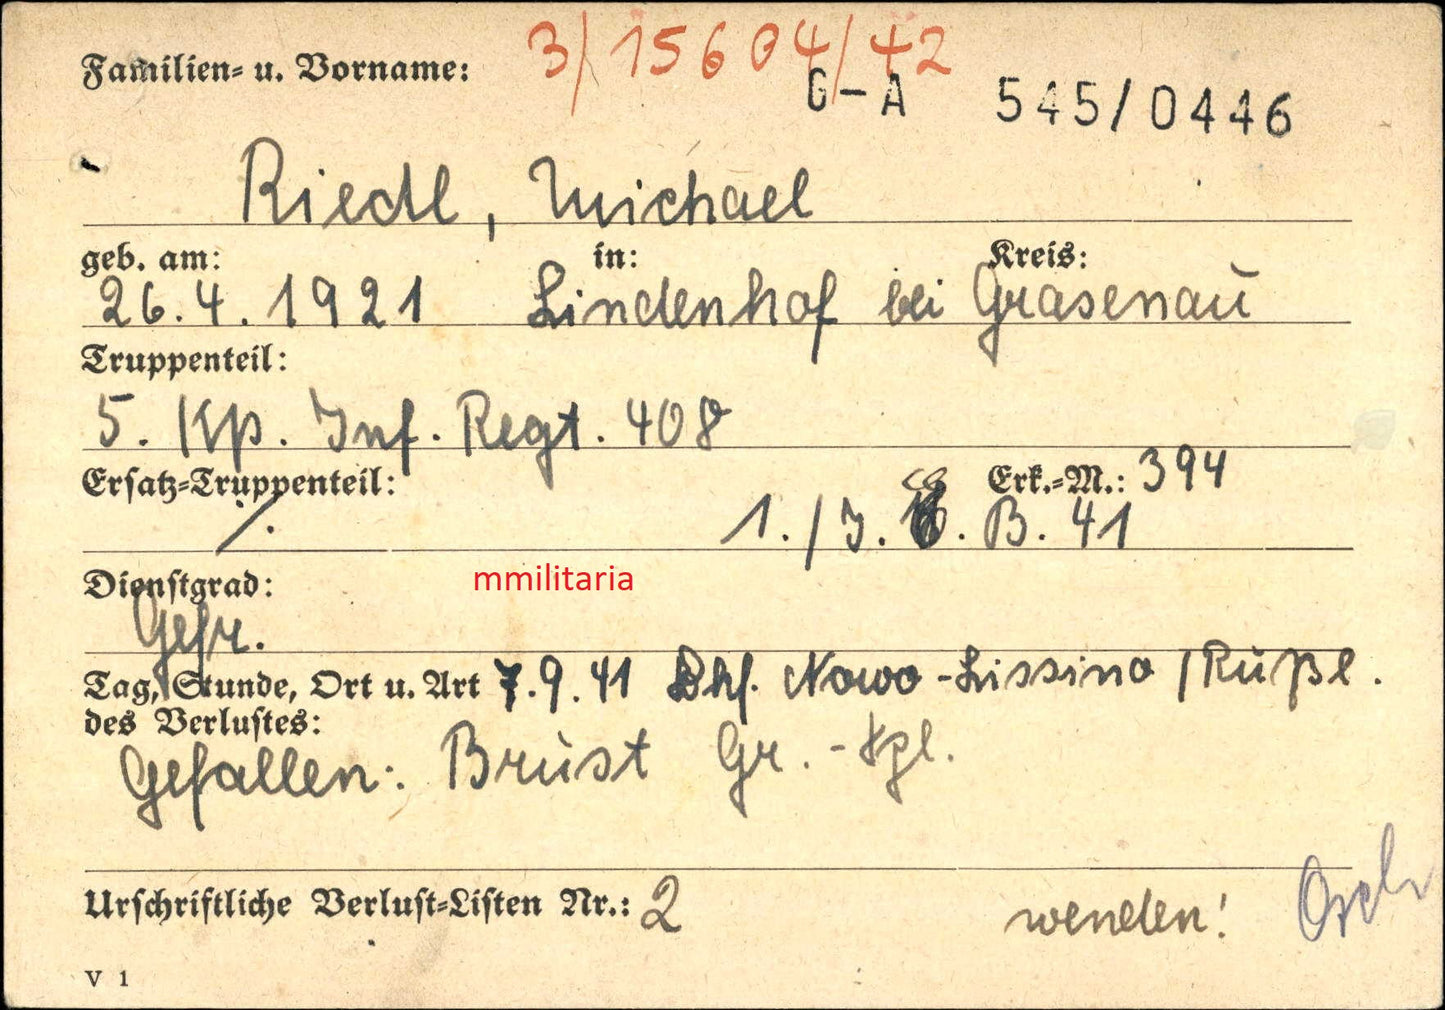 3/15604/42
Familien- u. Vorname:
G-A 545/0446
Riedl, Michael
geb. am: in: Kreis:
26.4.1921 Lindenhof bei Grasenau
Truppenteil:
5. Kp. Inf. Regt. 408
Ersatz-Truppenteil: Erk.-M.: 394
./. 1./J. B. 41
Dienstgrad:
mmilitaria
Gefr.
Tag, Stunde, Ort u. Art 7.9.41 Bhf. Nowo-Lissino / Rußl.
des Verlustes:
Gefallen: Brust Gr.-Spl.
Urschriftliche Verlust-Listen Nr.: 2
wenden!
V 1